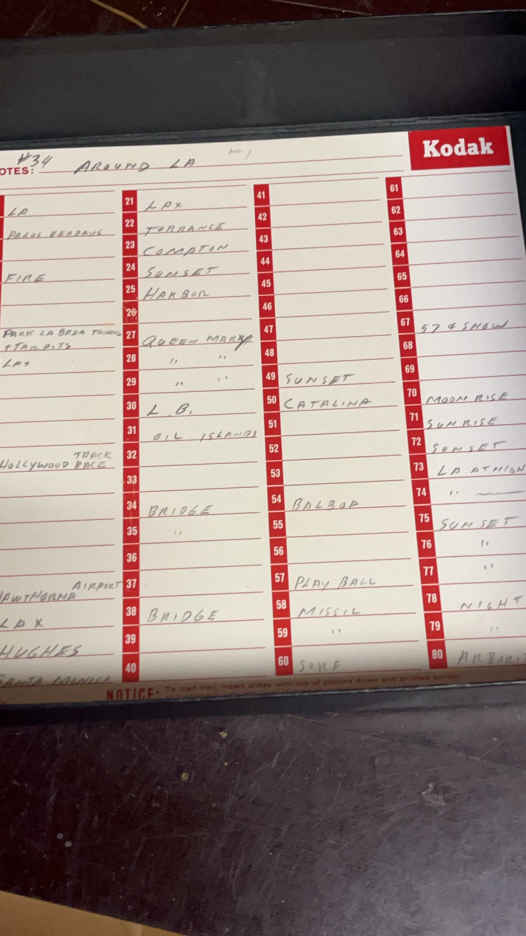 #34 AROUND LA
OTES:
Kodak
LA
FIRE
PARK LA BREA
+ TAR PITS
TRACK
HOLLYWOOD RACE
AIRPORT
LAX
HUGHES
SANTA MONICA
21 LAX
22 TORRANCE
23 COMPTON
24 SUNSET
25 HARBOR
26
27 QUEEN MARY
28 " "
29 " "
30 L.B.
31 OIL ISLANDS
32
33
34 BRIDGE
35 "
36
37
38 BRIDGE
39
40
41
42
43
44
45
46
47
48
49 SUNSET
50 CATALINA
51
52
53
54
55
56
57 PLAY BALL
58 MISSIL
59 "
60
61
62
63
64
65
66
67 57 & SNOW
68
69
70 MOONRISE
71 SUNRISE
72 SUNSET
73 LA
74 "
75 SUNSET
76 "
77 "
78 NIGHT
79 "
80
NOTICE: